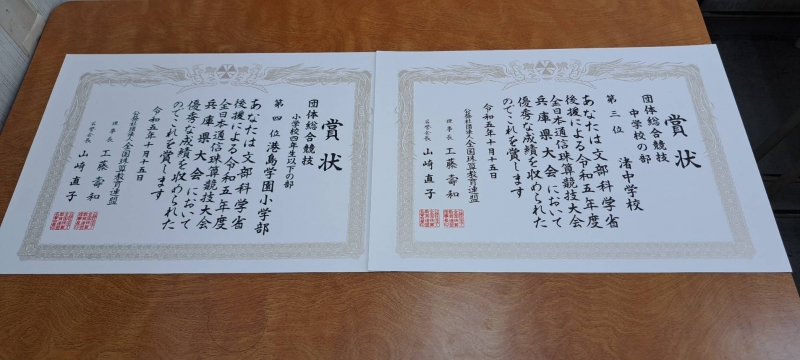 賞状
団体総合競技
小学校四年生以下の部
第四位 港島学園小学部
あなたは文部科学省
後援による令和五年度
全日本通信珠算競技大会
兵庫県大会において
優秀な成績を収められた
のでこれを賞します
令和五年十月十五日
公益社団法人全国珠算教育連盟
理事長 工藤壽和
名誉会長 山崎直子
賞状
団体総合競技
中学校の部
第三位 渚中学校
あなたは文部科学省
後援による令和五年度
全日本通信珠算競技大会
兵庫県大会において
優秀な成績を収められた
のでこれを賞します
令和五年十月十五日
公益社団法人全国珠算教育連盟
理事長 工藤壽和
名誉会長 山崎直子